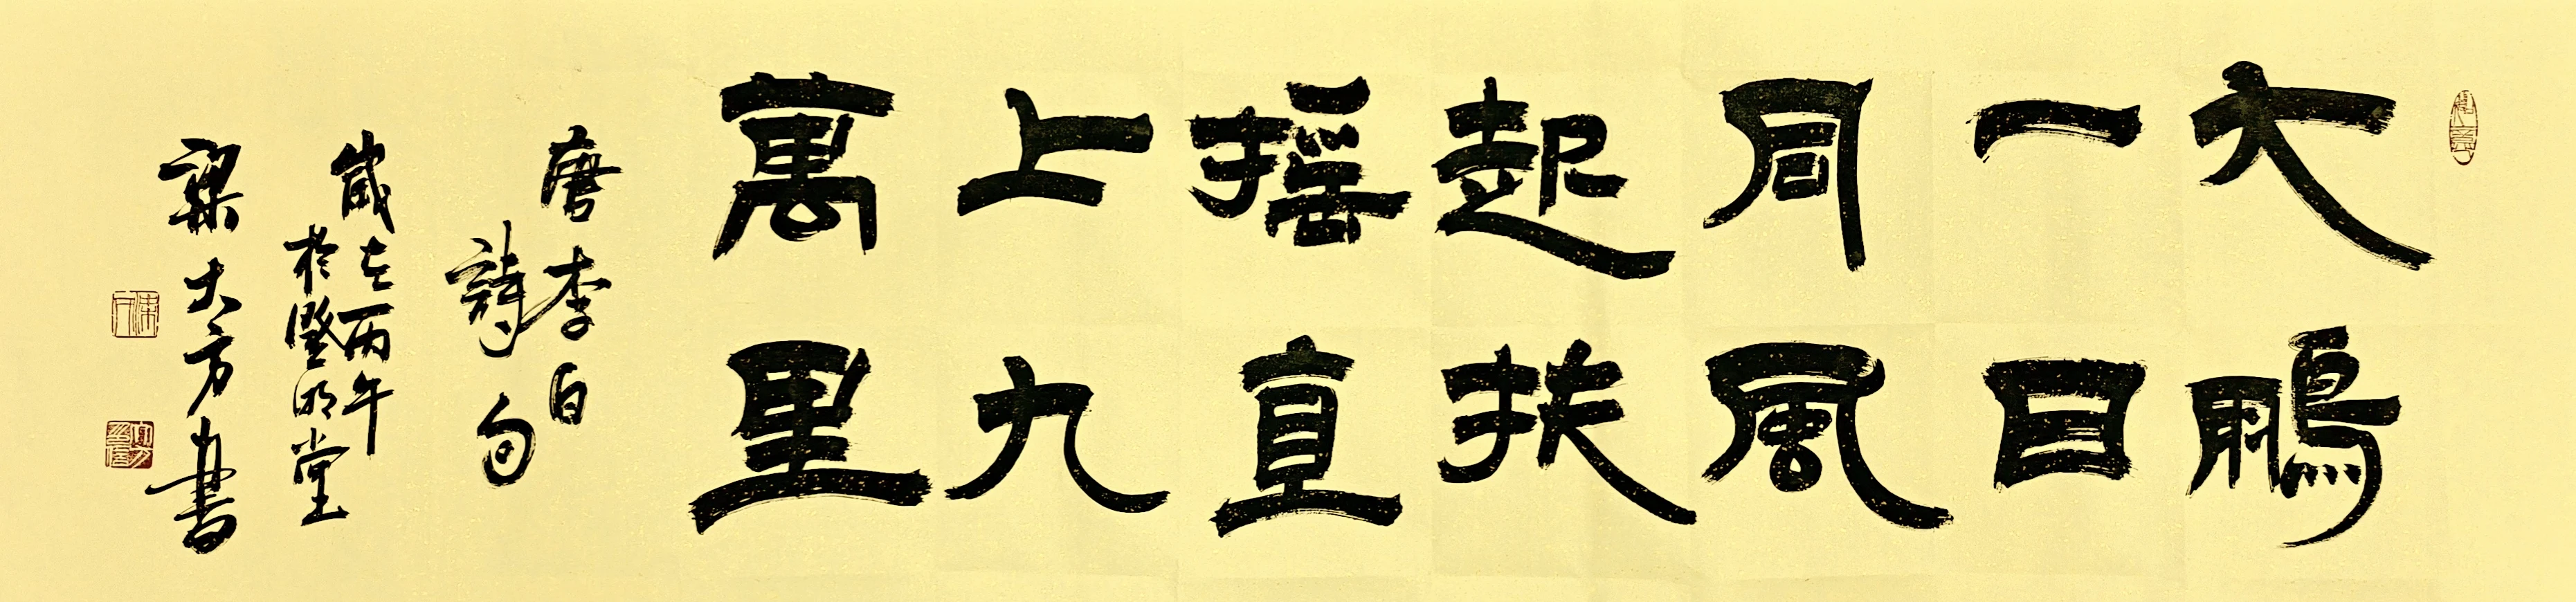 大鵬
一日
同風
起扶
搖直
上九
萬里
唐李白
詩句
歲在丙午
於堅明堂
梁大方書